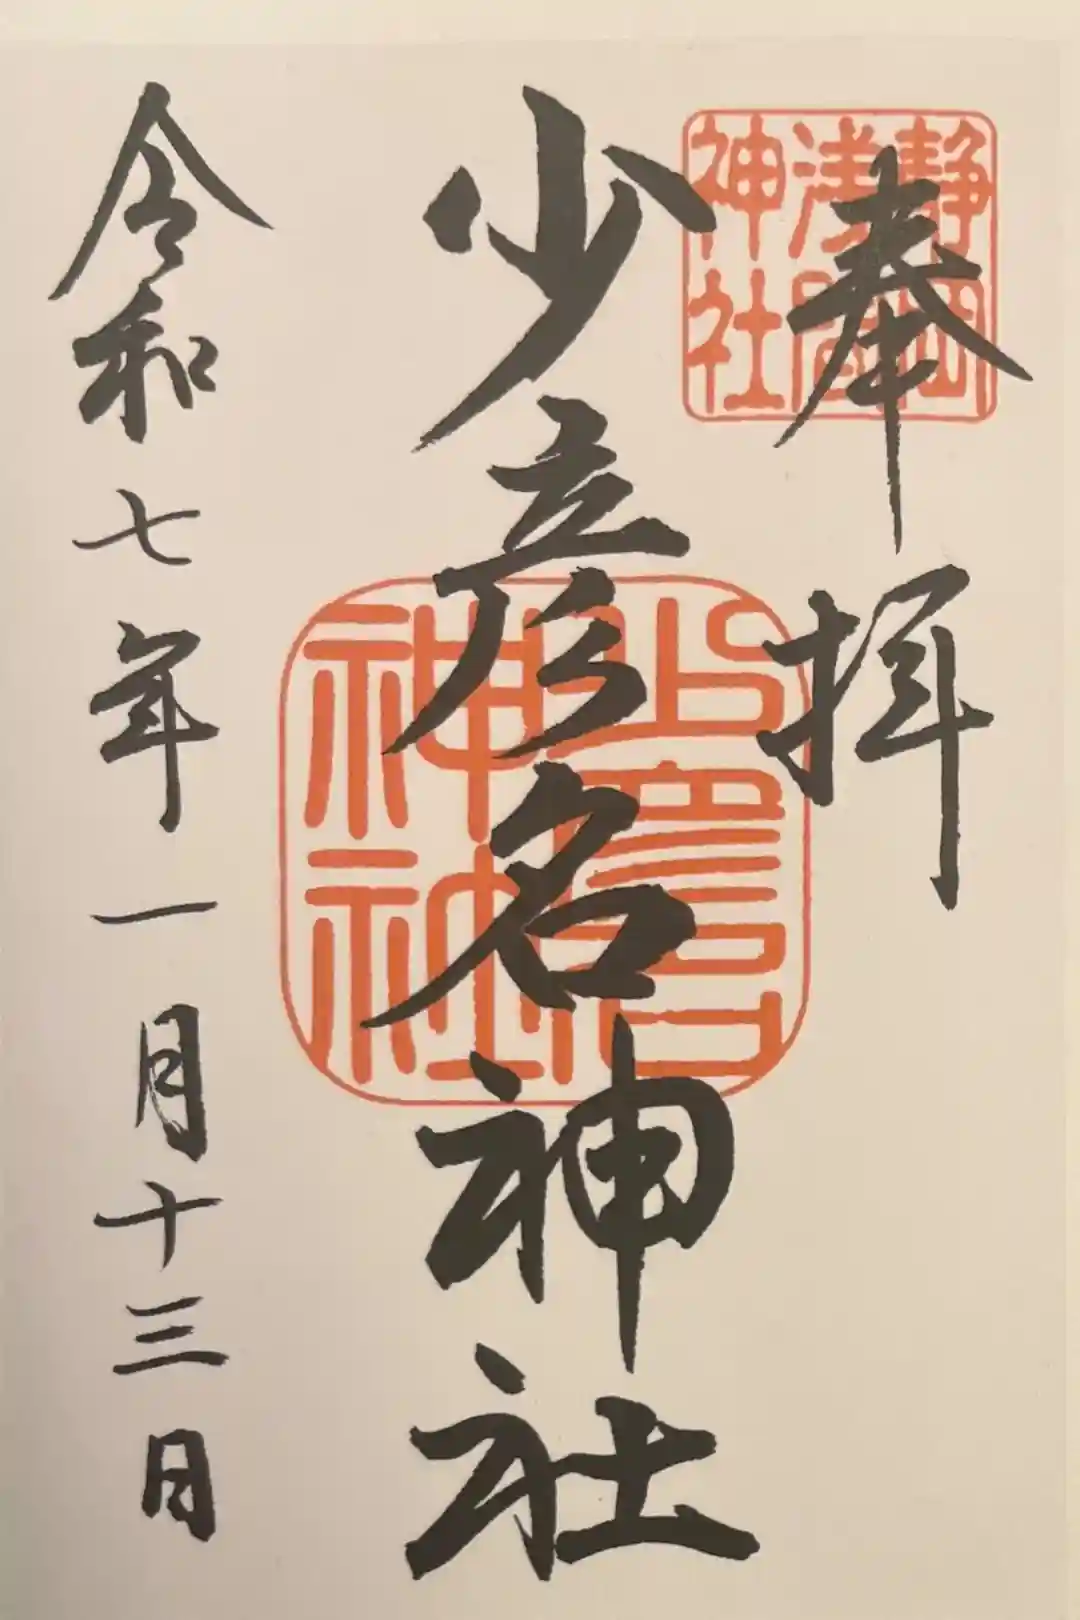 奉拝
静岡
浅間
神社
少彦名神社
神社
令和七年一月十三日